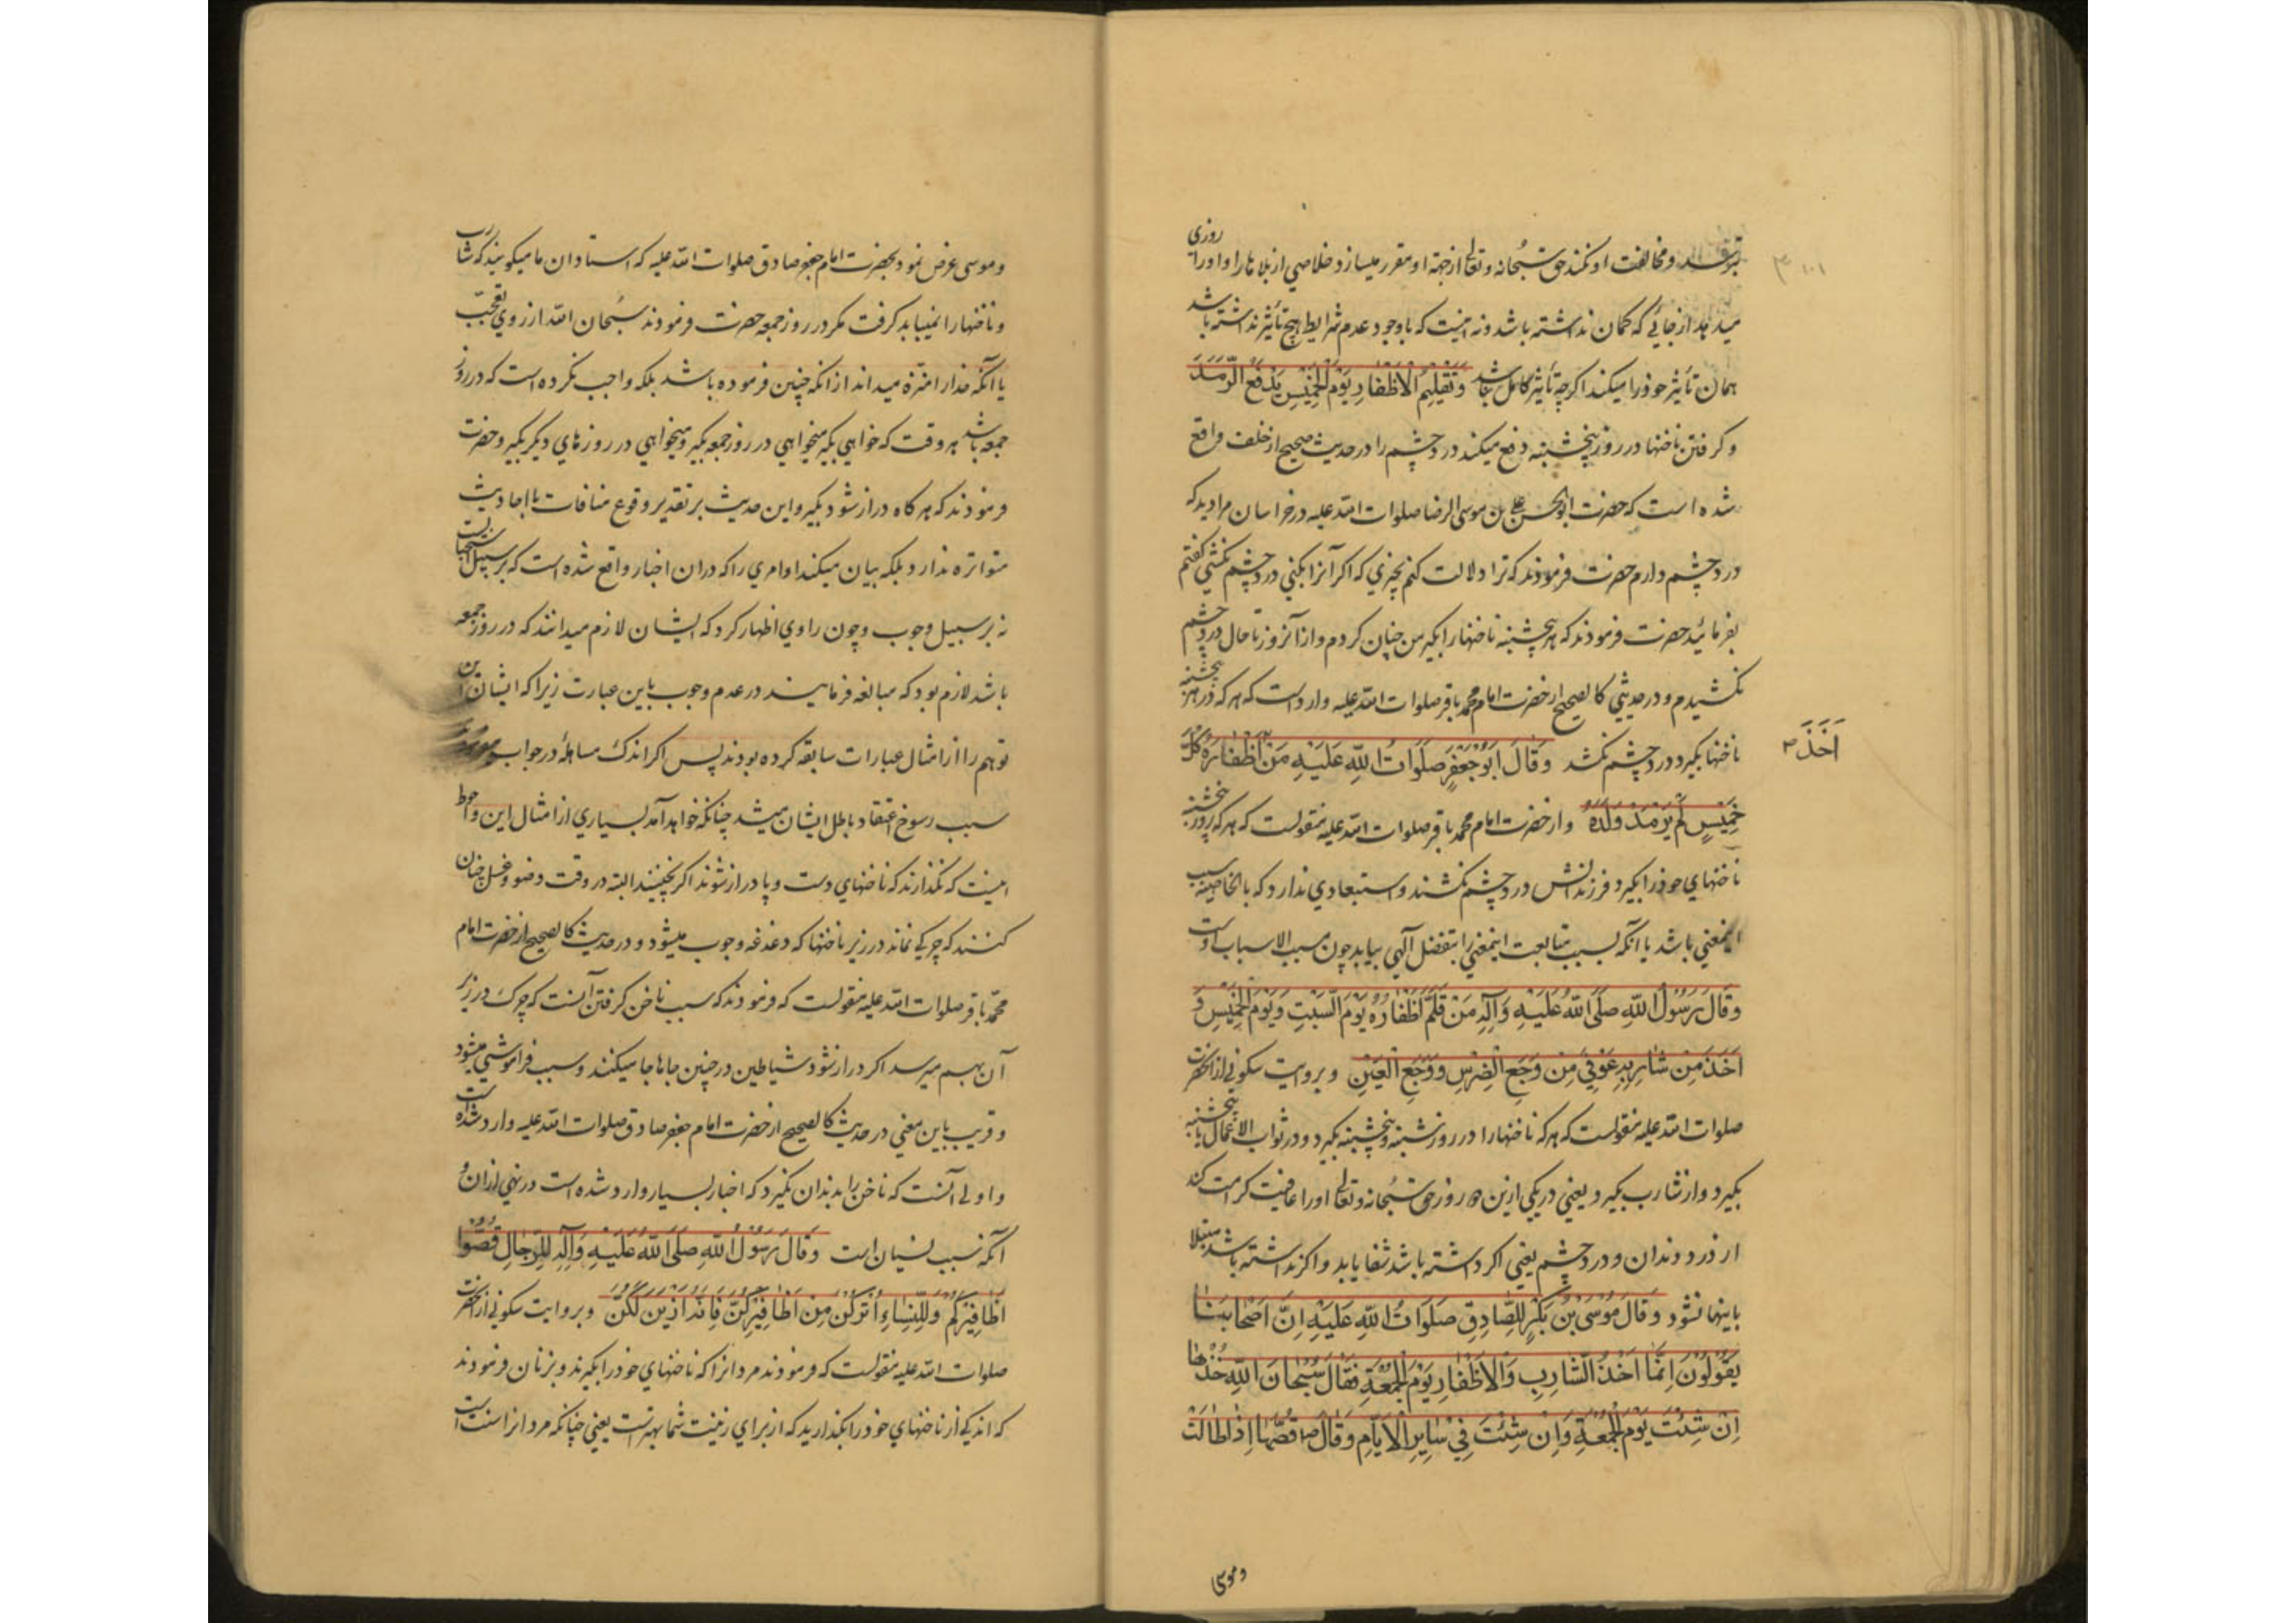 و مخالفت او نکند حق سبحانه و تعالی از جهة او مقرر میسازد خلاصی از بلاها را و او را روزی
میدهد از جائی که گمان نداشته باشد و نه اینست که با وجود عدم شرایط هیچ تأثیر نداشته باشد
همان تأثیر خود را میکند اگرچه تأثیر کامل نباشد وَتَقْلِیْمُ الْاَظْفَارِ یَوْمَ الْخَمِیْسِ یَدْفَعُ الرَّمَدَ
و گرفتن ناخنها در روز پنجشنبه دفع میکند درد چشم را در حدیث صحیح از خلف واقع
شده است که حضرت ابو الحسن علی بن موسی الرضا صلوات الله علیه در خراسان مرا دید که
درد چشم دارم حضرت فرمودند که ترا دلالت کنم بچیزی که اگر آنرا بکنی درد چشم نکشی گفتم
بفرمائید حضرت فرمودند که هر پنجشنبه ناخنها را بگیر من چنان کردم و از آنروز تا حال درد چشم
نکشیدم و در حدیثی کالصحیح از حضرت امام محمد باقر صلوات الله علیه وارد است که هر که در هر پنجشنبه
ناخنها بگیرد درد چشم نکشد وَقَالَ اَبُوْ جَعْفَرٍ صَلَوَاتُ اللّٰهِ عَلَیْهِ مَنْ اَظْفَارَهُ کُلَّ
اَخَذَ
خَمِیْسٍ لَمْ یَرْمَدْ وَلَدُهُ و از حضرت امام محمد باقر صلوات الله علیه منقولست که هر که روز پنجشنبه
ناخنهای خود را بگیرد فرزندانش درد چشم نکشند و استبعادی ندارد که بالخاصیة سبب
اینمعنی باشد یا آنکه بسبب متابعت اینمعنی را بتفضل آلهی بیابد چون مسبب الاسباب اوست
وَقَالَ رَسُوْلُ اللّٰهِ صَلَّی اللّٰهُ عَلَیْهِ وَآلِهِ مَنْ قَلَّمَ اَظْفَارَهُ یَوْمَ السَّبْتِ وَیَوْمَ الْخَمِیْسِ وَ
اَخَذَ مِنْ شَارِبِهِ عُوْفِیَ مِنْ وَجَعِ الضِّرْسِ وَوَجَعِ الْعَیْنِ و بروایت سکونی از آنحضرت
صلوات الله علیه منقولست که هر که ناخنها را در روز شنبه و پنجشنبه بگیرد و در ثواب الاعمال یا پنجشنبه
بگیرد و از شارب بگیرد یعنی در یکی ازین دو روز حق سبحانه و تعالی او را عافیت کرامت کند
از درد دندان و درد چشم یعنی اگر داشته باشد شفا یابد و اگر نداشته باشد مبتلا
باینها نشود وَقَالَ مُوْسَی بْنُ بَکْرٍ لِلصَّادِقِ صَلَوَاتُ اللّٰهِ عَلَیْهِ اِنَّ اَصْحَابَنَا
یَقُوْلُوْنَ اِنَّمَا اَخْذُ الشَّارِبِ وَالْاَظْفَارِ یَوْمَ الْجُمُعَةِ فَقَالَ سُبْحَانَ اللّٰهِ خُذْهَا
اِنْ شِئْتَ یَوْمَ الْجُمُعَةِ وَاِنْ شِئْتَ فِیْ سَایِرِ الْاَیَّامِ وَقَالَ قُصَّهَا اِذَا طَالَتْ
و موسی
و موسی عرض نمود بحضرت امام جعفر صادق صلوات الله علیه که استادان ما میگویند که شارب
و ناخنها را نمیباید گرفت مگر در روز جمعه حضرت فرمودند سبحان الله از روی تعجب
یا آنکه خدا را منزه میداند از آنکه چنین فرموده باشد بلکه واجب نکرده است که در روز
جمعه باشد هر وقت که خواهی بگیر میخواهی در روز جمعه بگیر و میخواهی در روزهای دیگر بگیر و حضرت
فرمودند که هر گاه دراز شود بگیر و این حدیث بر تقدیر وقوع منافات با احادیث
متواتره ندارد بلکه بیان میکند اوامری را که در آن اخبار واقع شده است که بر سبیل استحبابست
نه بر سبیل وجوب و چون راوی اظهار کرد که ایشان لازم میدانند که در روز جمعه
باشد لازم بود که مبالغه فرمایند در عدم وجوب باین عبارت زیرا که ایشان این
توهم را از امثال عبارات سابقه کرده بودند پس اگر اندک مساهلهٔ در جواب
سبب رسوخ اعتقاد باطل ایشان میشد چنانکه خواهد آمد بسیاری از امثال این و احوط
اینست که نگذارند که ناخنهای دست و پا دراز شوند اگر نچینند البته در وقت وضو و غسل چنان
کنند که چرکی نماند در زیر ناخنها که دغدغه وجوب میشود و در حدیث کالصحیح از حضرت امام
محمد باقر صلوات الله علیه منقولست که فرمودند که سبب ناخن گرفتن آنست که چرک در زیر
آن بهم میرسد اگر دراز شود شیاطین در چنین جاها جا میکنند و سبب فراموشی میشود
و قریب باین معنی در حدیث کالصحیح از حضرت امام جعفر صادق صلوات الله علیه وارد شده است
و اولی آنست که ناخن را بدندان نگیرد که اخبار بسیار وارد شده است در نهی از آن و
آنکه سبب نسیان است وَقَالَ رَسُوْلُ اللّٰهِ صَلَّی اللّٰهُ عَلَیْهِ وَآلِهِ لِلرِّجَالِ قُصُّوْا
اَظَافِیْرَکُمْ وَلِلنِّسَاءِ اُتْرُکْنَ مِنْ اَظَافِیْرِکُنَّ فَاِنَّهُ اَزْیَنُ لَکُنَّ و بروایت سکونی از آنحضرت
صلوات الله علیه منقولست که فرمودند مردانرا که ناخنهای خود را بگیرند و بزنان فرمودند
که اندکی از ناخنهای خود را بگذارید که از برای زینت شما بهتر است یعنی چنانکه مردانرا سنت است